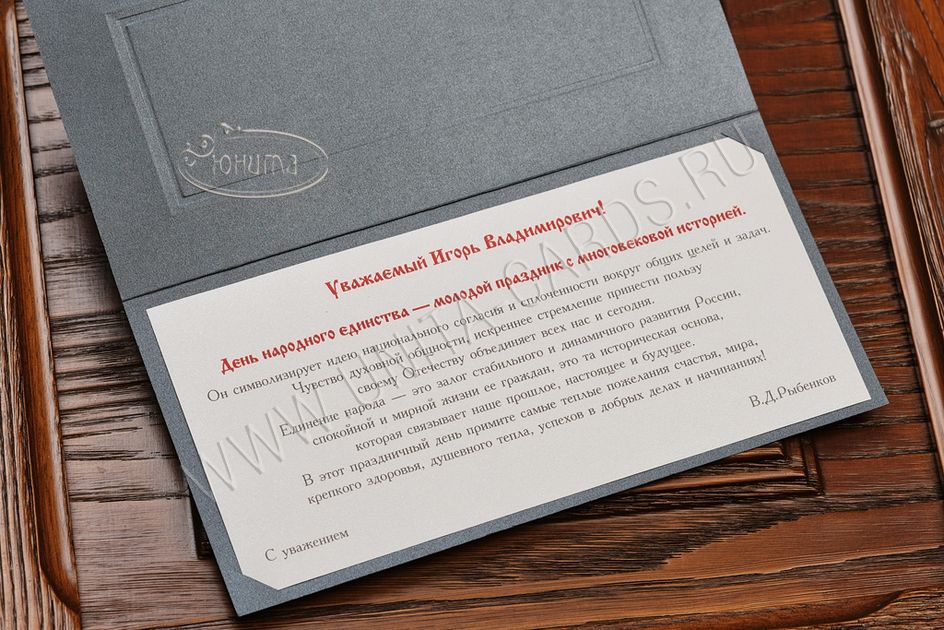 Юнита
Уважаемый Игорь Владимирович!
День народного единства — молодой праздник с многовековой историей.
Он символизирует идею национального согласия и сплоченности вокруг общих целей и задач.
Чувство духовной общности, искреннее стремление принести пользу
своему Отечеству объединяет всех нас и сегодня.
Единение народа — это залог стабильного и динамичного развития России,
спокойной и мирной жизни ее граждан, это та историческая основа,
которая связывает наше прошлое, настоящее и будущее.
В этот праздничный день примите самые теплые пожелания счастья, мира,
крепкого здоровья, душевного тепла, успехов в добрых делах и начинаниях!
С уважением
В.Д.Рыбенков
WWW.UNITA-CARDS.RU